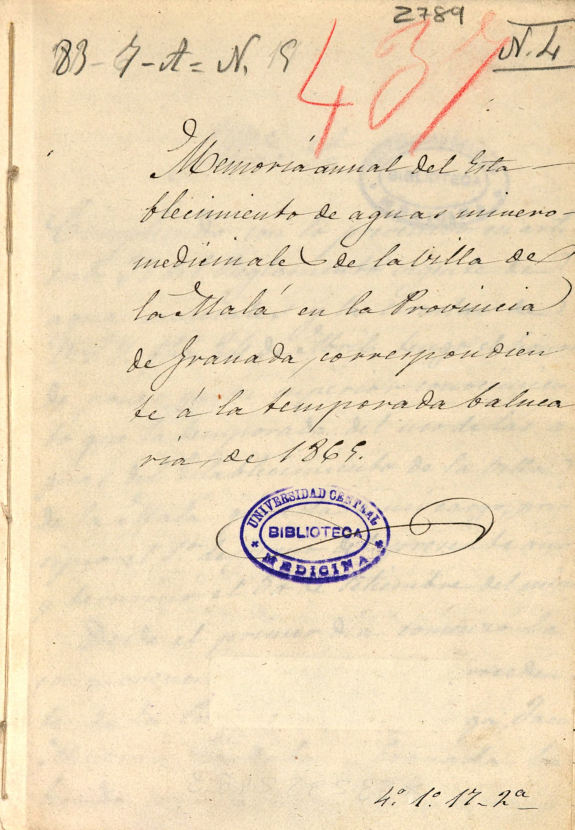 2789
83-7-A=N.
437
N.4
Memoria anual del Esta-
blecimiento de aguas minero-
medicinales de la Villa de
la Malá en la Provincia
de Granada, correspondien
te á la temporada balnea
ria de 1865.
UNIVERSIDAD CENTRAL
BIBLIOTECA
MEDICINA
4º 1º 17-2ª